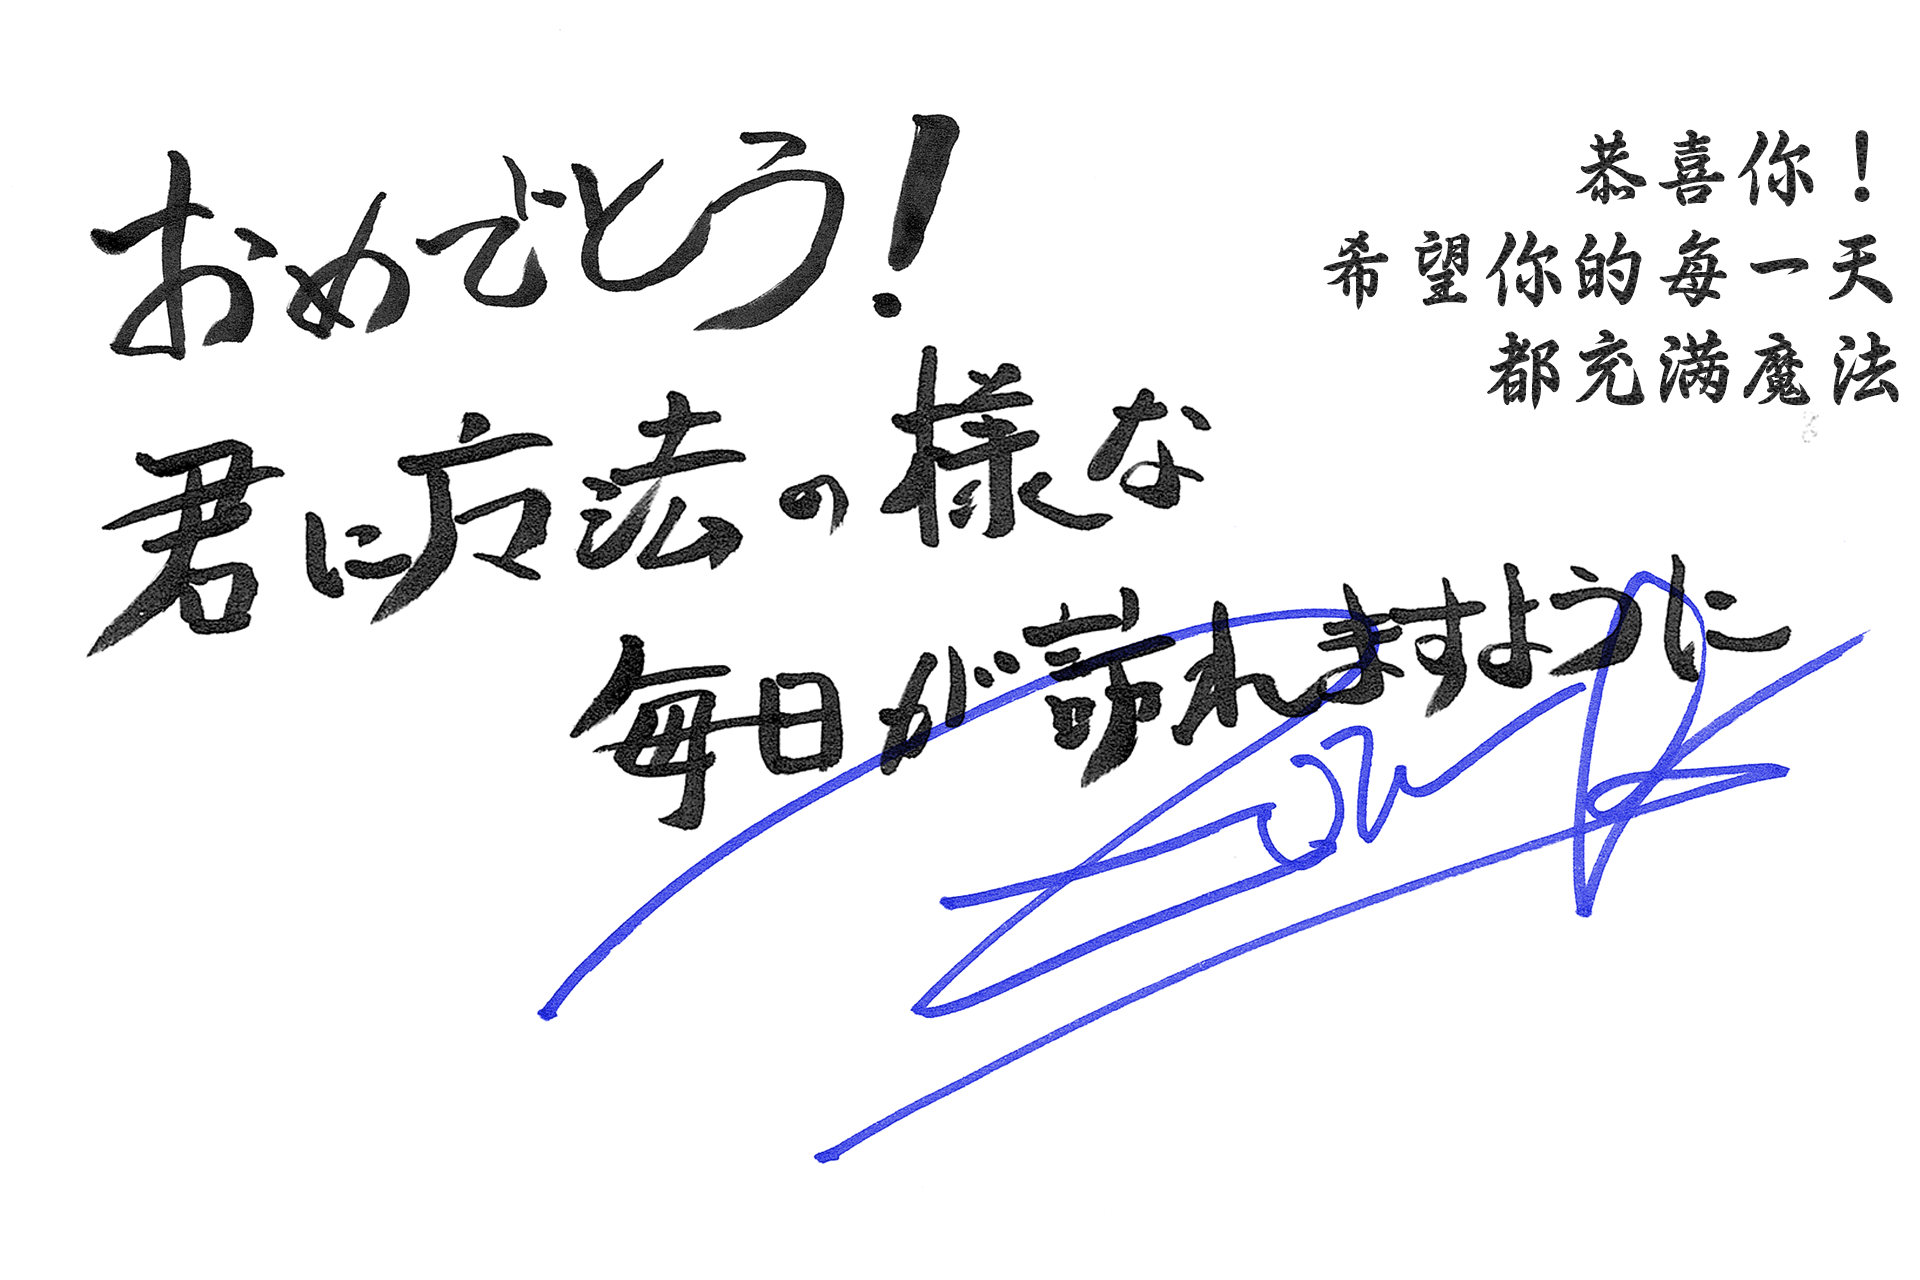 おめでとう！
君に广マ法の様な
毎日が訪れますように
恭喜你！
希望你的每一天
都充满魔法